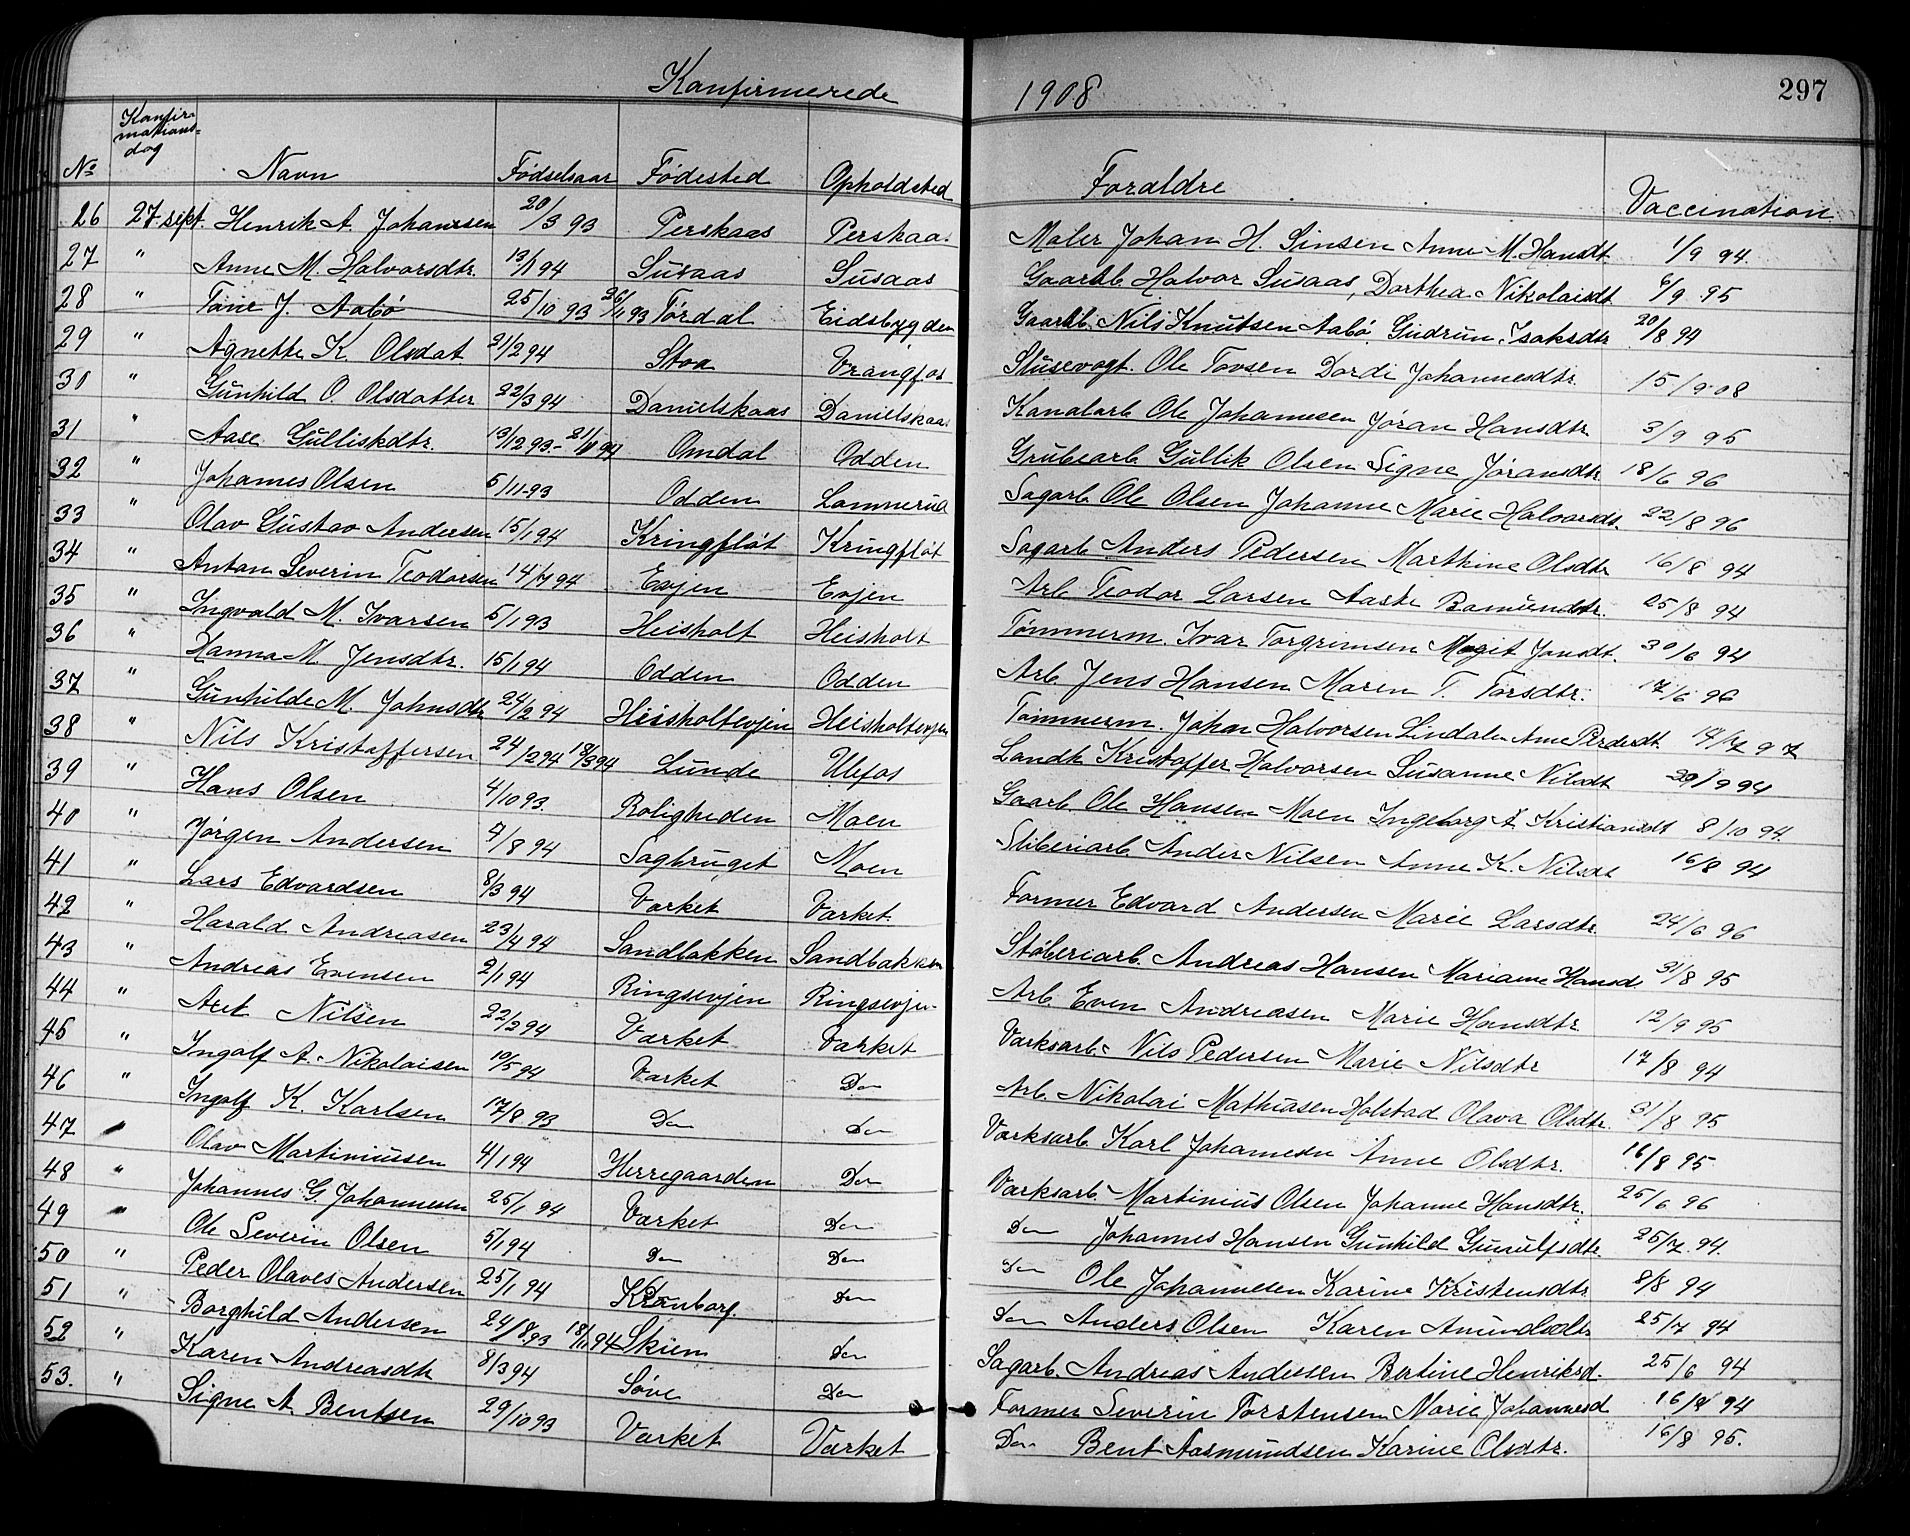 Konfirmerede 1908 297
Konfirmationsdag
No Navn Fødselsaar Fødested Opholdsted Foraldre Vaccination
26 27 sept. Henrik A. Johansen 20/3 93 Perskaas Perskaas Maler Johan H. Sinsen Anne M. Hansdt 1/9 94
27 " Anne M. Halvorsdtr. 13/1 94 Susaas Susaas Gaardb Halvor Susaas, Dorthea Nikolaisdt 6/9 95
28 " Tone J. Aabø 25/10 93 26/11 93 Tørdal Eidsbygden Gaardb. Nils Knutsen Aabø, Gudrun Isaksdtr 20/8 94
29 " Agnette K Olsdat 21/2 94 Stoa Vrangfos Slusevogt. Ole Tovsen Dordi Johannesdtr 15/9 08
30 " Gunhild O. Olsdatter 22/3 94 Danielskaas Danielskaas Kanalarb Ole Johannesen Jøran Hansdtr 3/9 95
31 " Aase Gulliksdtr. 13/12 93 - 21/1 94 Omdal Odden Grubearb Gullik Olsen Signe Jøransdtr 18/6 96
32 " Johannes Olsen 5/11 93 Odden Lannerud Sagarb Ole Olsen Johanne Marie Halvorsdt. 22/8 96
33 " Olav Gustav Andersen 15/1 94 Kringfløt Kringfløt Sagarb Anders Pedersen Marthine Olsdtr 16/8 94
34 " Anton Severin Teodorsen 14/7 94 Evjen Evjen Arb. Teodor Larsen Aaste Bamundtr. 25/8 94
35 " Ingvald M. Ivarsen 5/1 93 Heisholt Heisholt Tømmerm. Ivar Torgrimsen Magit Jonsdt. 30/6 94
36 " Hanna M. Jensdtr. 15/1 94 Odden Odden Arb. Jens Hansen Maren T. Torsdtr. 17/6 96
37 " Gunhilde M. Johnsdtr 24/2 94 Heisholtevjen Heisholtevjen Tømmerm. Johan Halvorsen Lindalen Anne Pedersdt 14/7 97
38 " Nils Kristoffersen 24/2 94 18/3 94 Lunde Ulefos Landh Kristoffer Halvorsen Susanne Nilsdt 20/9 94
39 " Hans Olsen 4/10 93. Roligheden Moen Gaarb. Ole Hansen Moen Ingeborg A Kristiansdt 8/10 94.
40 " Jørgen Andersen 4/8 94 Sagbruget Moen Støberiarb. Ander Nilsen Anne K. Nilsdt 16/8 94
41 " Lars Edvardsen 8/3 94 Værket Værket. Former Edvard Andersen Marie Larsdtr 24/6 96
42 " Harald Andreasen 23/4 94 Sandbakken Sandbakken Støberiarb. Andreas Hansen Mariane Hansd. 31/8 95
43 " Andreas Evensen 2/1 94 Ringsevjen Ringsevjen Arb. Even Andreasen Marie Hansdtr 12/9 95
44 " Axet Nilsen 22/2 94 Værket Værket Værksarb. Nils Pedersen Marie Nilsdtr 17/8 94
45 " Ingolf A. Nikolaisen 10/5 94 Værket Do Arb. Nikolai Mathiasen Holstad Olava Olsdtr. 31/8 95
46 " Ingolf K. Karlsen 17/8 93 Do Do Værksarb. Karl Johannesen Anne Olsdtr. 16/8 95
47 " Olav Martiniussen 4/1 94 Herregaarden Do Værksarb. Martinius Olsen Johanne Hansdtr. 25/6 96
48 " Johannes G. Johannesen 25/1 94 Værket Do Do Johannes Hansen Gunhild Gunulfsdtr 25/7 94.
49 " Ole Severin Olsen 5/1 94 Do Do Do Ole Johannesen Karine Kristensdtr 8/8 94
50 " Peder Olaves Andersen 25/1 94 Kronborg. Do Do Anders Olsen Karen Amundsdtr 25/7 94
51 " Borghild Andersen 24/8 93 18/11 94 Skien Do Sagarb. Andreas Andersen Bertine Henriksd. 25/6 94
52 " Karen Andreasdtr 8/3 94 Søve Do Former Severin Torstensen Marie Johannesd 16/8 94
53. " Signe A Bentsen 29/10 93 Værket Værket Do Bent Aasmundsen Karine Olsdtr. 16/8 95.